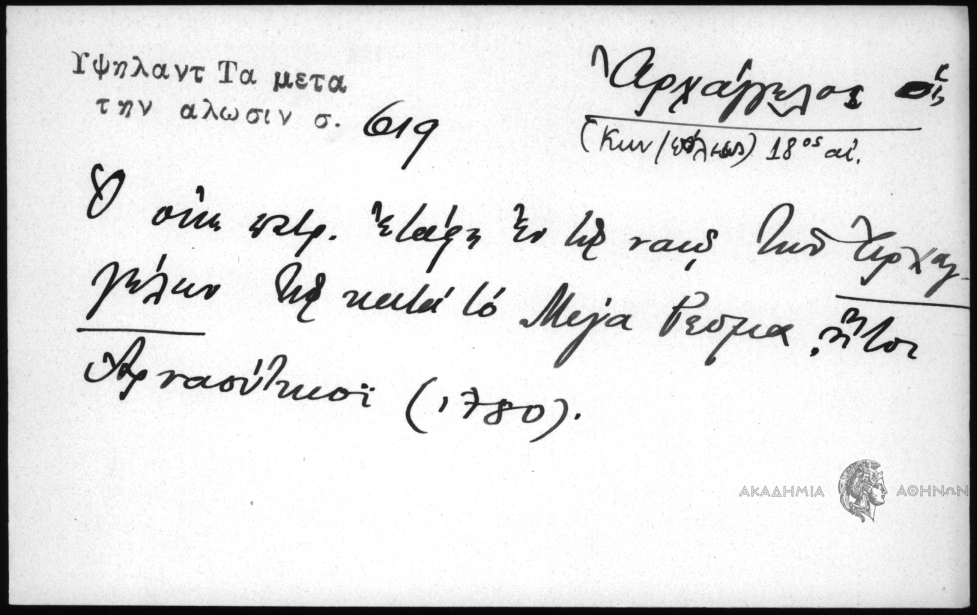 Υψηλαντ Τα μετα
την αλωσιν σ. 619
Ἀρχάγγελος
(Κων/πόλεως) 18ος αἰ.
Ὁ οἰκ. πατρ. ἐτάφη ἐν τῷ ναῷ τῶν Ἀρχαγ-
γέλων τῷ κατά τό Μέγα Ρεῦμα, ἤτοι
Ἀρναούτκιοϊ (1780).
ΑΚΑΔΗΜΙΑ ΑΘΗΝΩΝ